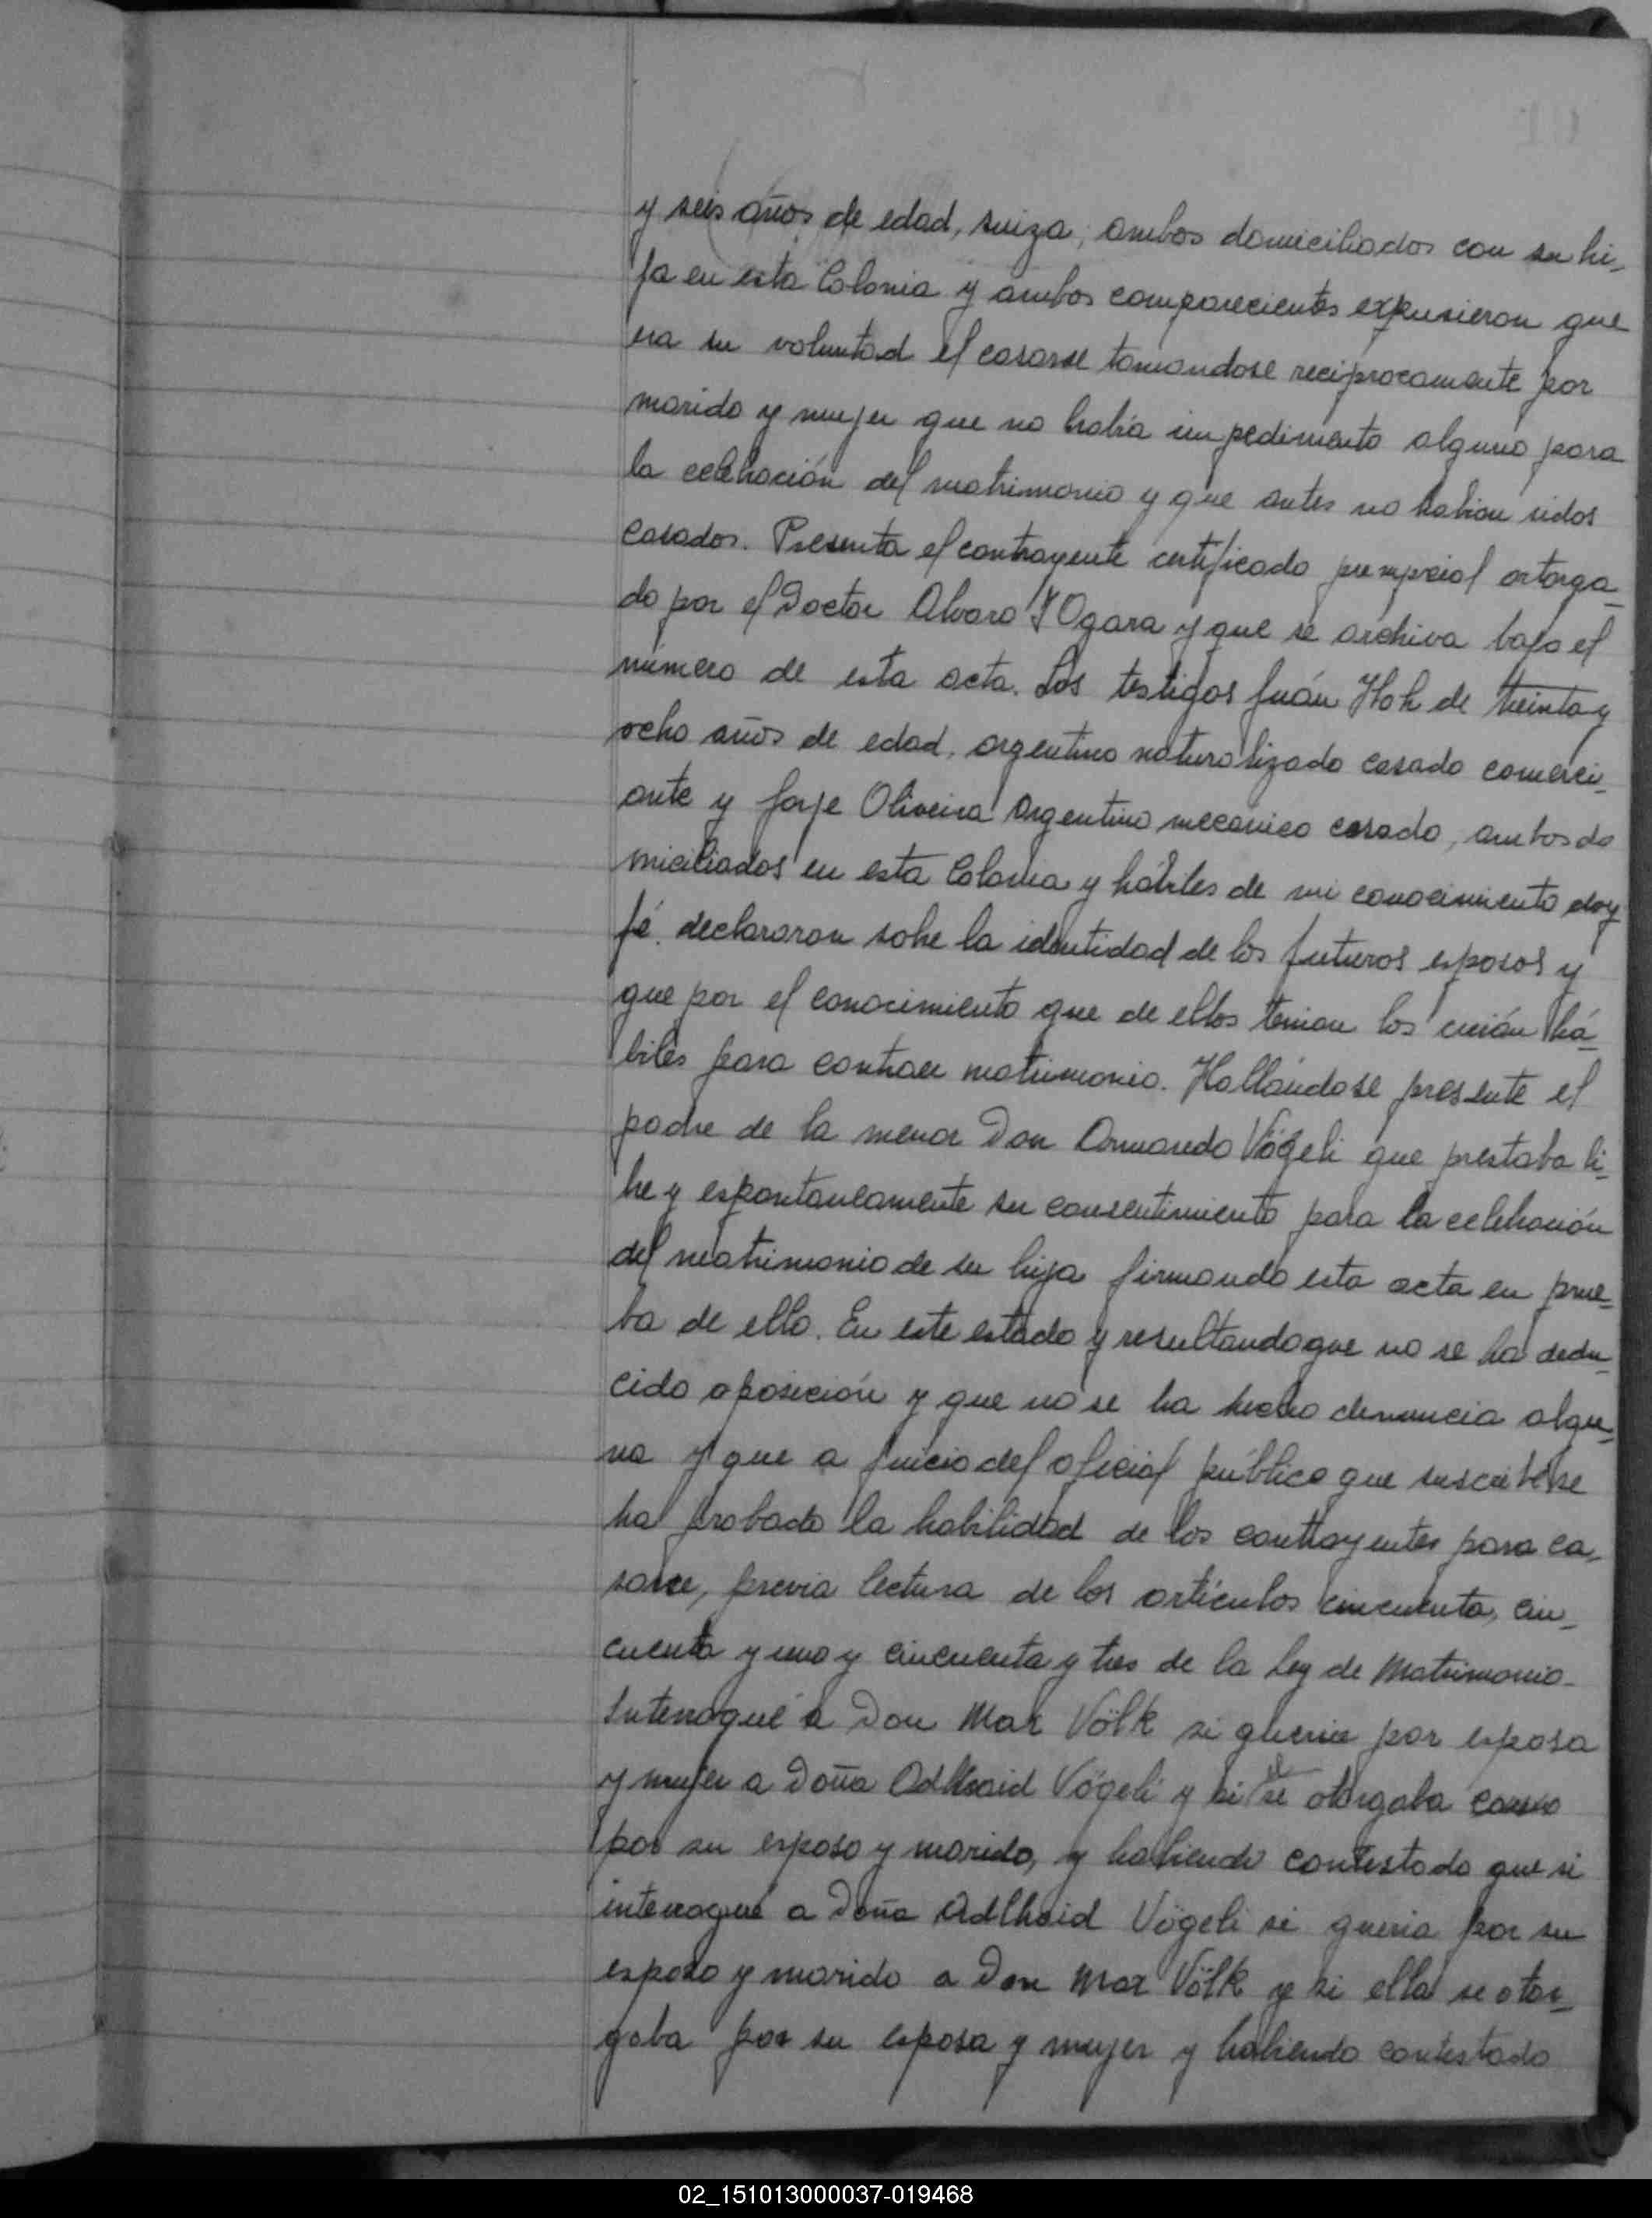 y seis años de edad, suiza, ambos domiciliados con su hi-
ja en esta Colonia y ambos comparecientes expusieron que
era su voluntad el casarse tomandose reciprocamente por
marido y mujer que no había impedimento alguno para
la celebración del matrimonio y que antes no habian sidos
casados. Presenta el contrayente certificado prenupcial otorga-
do por el Doctor Alvaro Ogara y que se archiva bajo el
número de esta acta. Los testigos Juán Hoh de treinta y
ocho años de edad, argentino naturalizado casado comerci-
ante y Jorje Oliveira Argentino mecanico casado, ambos do
miciliados en esta Colonia y hábiles de mi conocimiento doy
fé. declararon sobre la identidad de los futuros esposos y
que por el conocimiento que de ellos tenian los creián há-
biles para contraer matrimonio. Hallándose presente el
padre de la menor Don Armando Vögeli que prestaba li-
bre y espontaneamente su consentimiento para la celebración
del matrimonio de su hija firmando esta acta en prue-
ba de ello. En este estado y resultando que no se ha dedu-
cido oposición y que no se ha hecho denuncia algu-
na y que a juicio del oficial público que suscribe se
ha probado la habilidad de los contrayentes para ca-
sarse, previa lectura de los artículos cincuenta, cin-
cuenta y uno y cincuenta y tres de la Ley de Matrimonio-
Interrogué a Don Max Völk si queria por esposa
y mujer a Doña Adlhaid Vögeli y si el se otorgaba como
por su esposo y marido, y habiendo contestado que si
interrogué a Doña Adlhaid Vögeli si queria por su
esposo y marido a Don Max Völk y si ella se otor-
gaba por su esposa y mujer y habiendo contestado
02_151013000037-019468